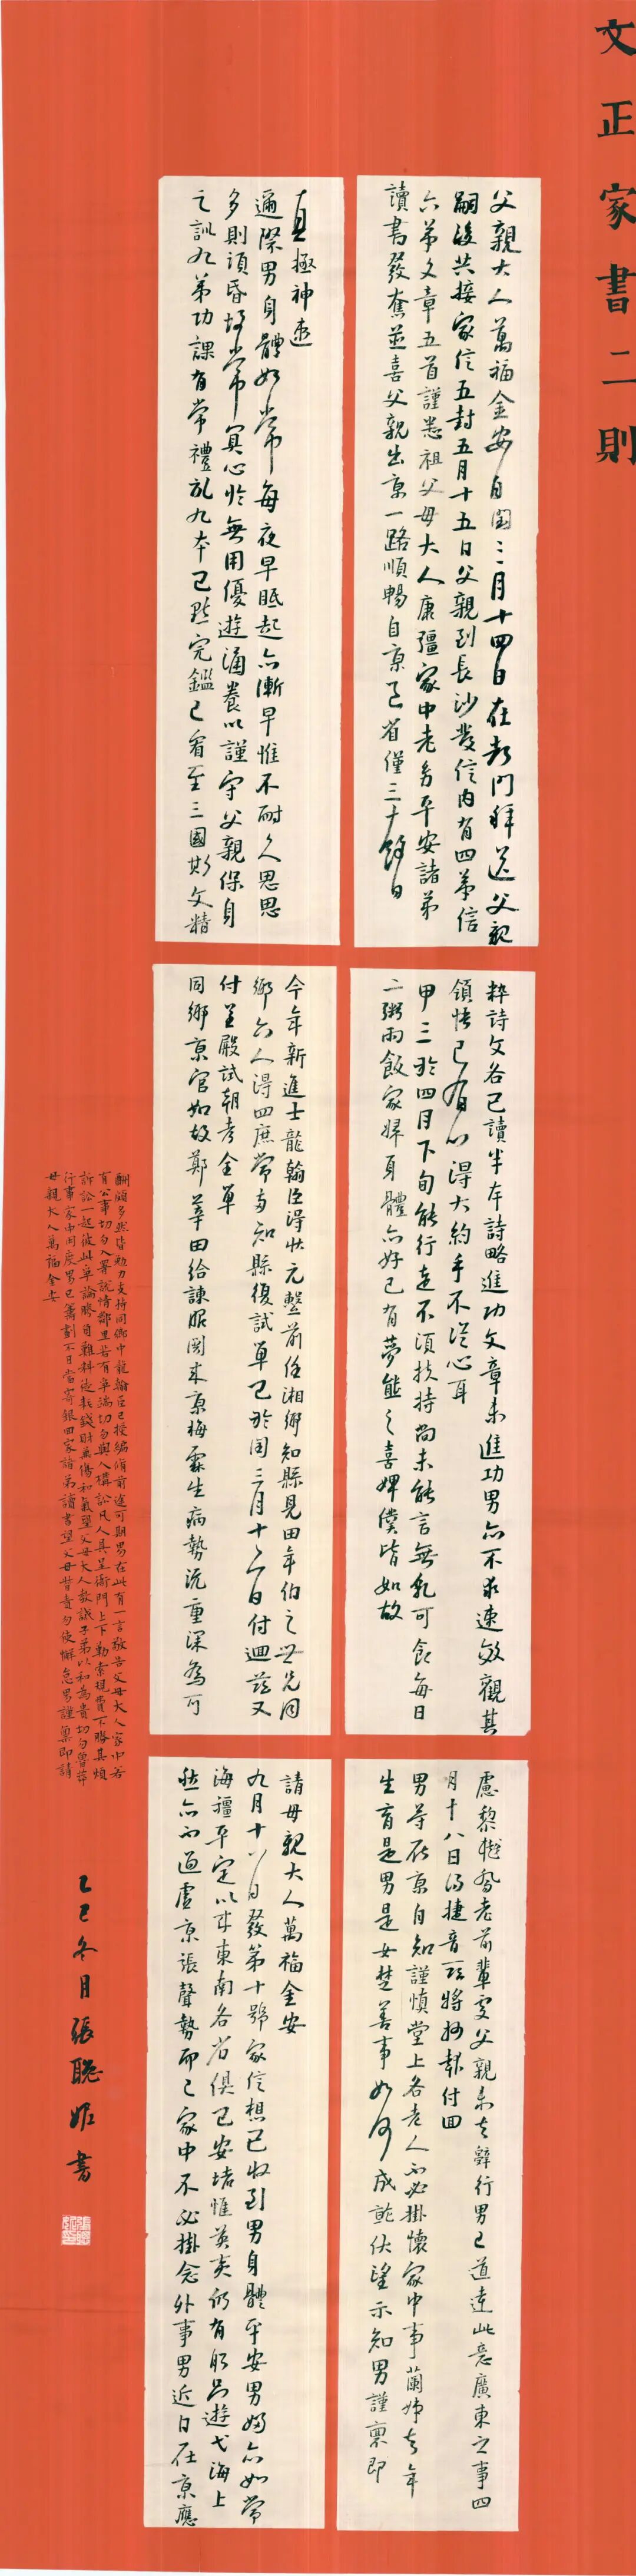 文正家書二則
父親大人萬福金安自閏三月十四日在都門拜送父親
嗣後共接家信五封五月十五日父親到長沙發信內有四弟信
六弟文章五首謹悉祖父母大人康彊家中老幼平安諸弟
讀書發奮並喜父親出京一路順暢自京至省僅三十餘日
真極神速
邇際男身體如常每夜早眠起亦漸早惟不耐久思思
多則頭昏故常冥心於無用優遊涵養以謹守父親保身
之訓九弟功課有常禮記九本已點完鑑已看至三國斯文精
粹詩文各已讀半本詩略進功文章未進功男亦不求速效觀其
領悟已有心得大約手不從心耳
甲三於四月下旬能行走不須扶持尚未能言無乳可食每日
一粥兩飯家婦身體亦好已有夢熊之喜婢僕皆如故
今年新進士龍翰臣得狀元繫前任湘鄉知縣見田年伯之世兄同
鄉六人得四庶常兩知縣復試單已於閏三月十六日付回茲又
付呈殿試朝考全單
同鄉京官如故鄭莘田給諫服闋來京梅霖生病勢沉重深為可
慮黎樾喬老前輩處父親未去辭行男已道達此意廣東之事四
月十八日得捷音茲將抄報付回
男等在京自知謹慎堂上各老人不必掛懷家中事蘭姊去年
生育是男是女楚善事如何成就伏望示知男謹禀即
請母親大人萬福金安
九月十八日發第十號家信想已收到男身體平安男婦亦如常
海疆平定以來東南各省俱已安堵惟英夷仍有船只遊弋海上
然亦不過虛張聲勢而已家中不必掛念外事男近日在京應
酬頗多然皆勉力支持同鄉中龍翰臣已授編修前途可期男在此有一言敬告父母大人家中若
有公事切勿入署說情鄰里若有爭端切勿與人構訟凡人具呈衙門上下勒索規費不勝其煩
訴訟一起彼此爭論勝負難料徒耗錢財兼傷和氣望父母大人教誡子弟以和為貴切勿魯莽
行事家中用度男已籌劃不日當寄銀回家諸弟讀書望父母督責勿使懈怠男謹稟即請
母親大人萬福金安
乙巳冬月張聰姬書